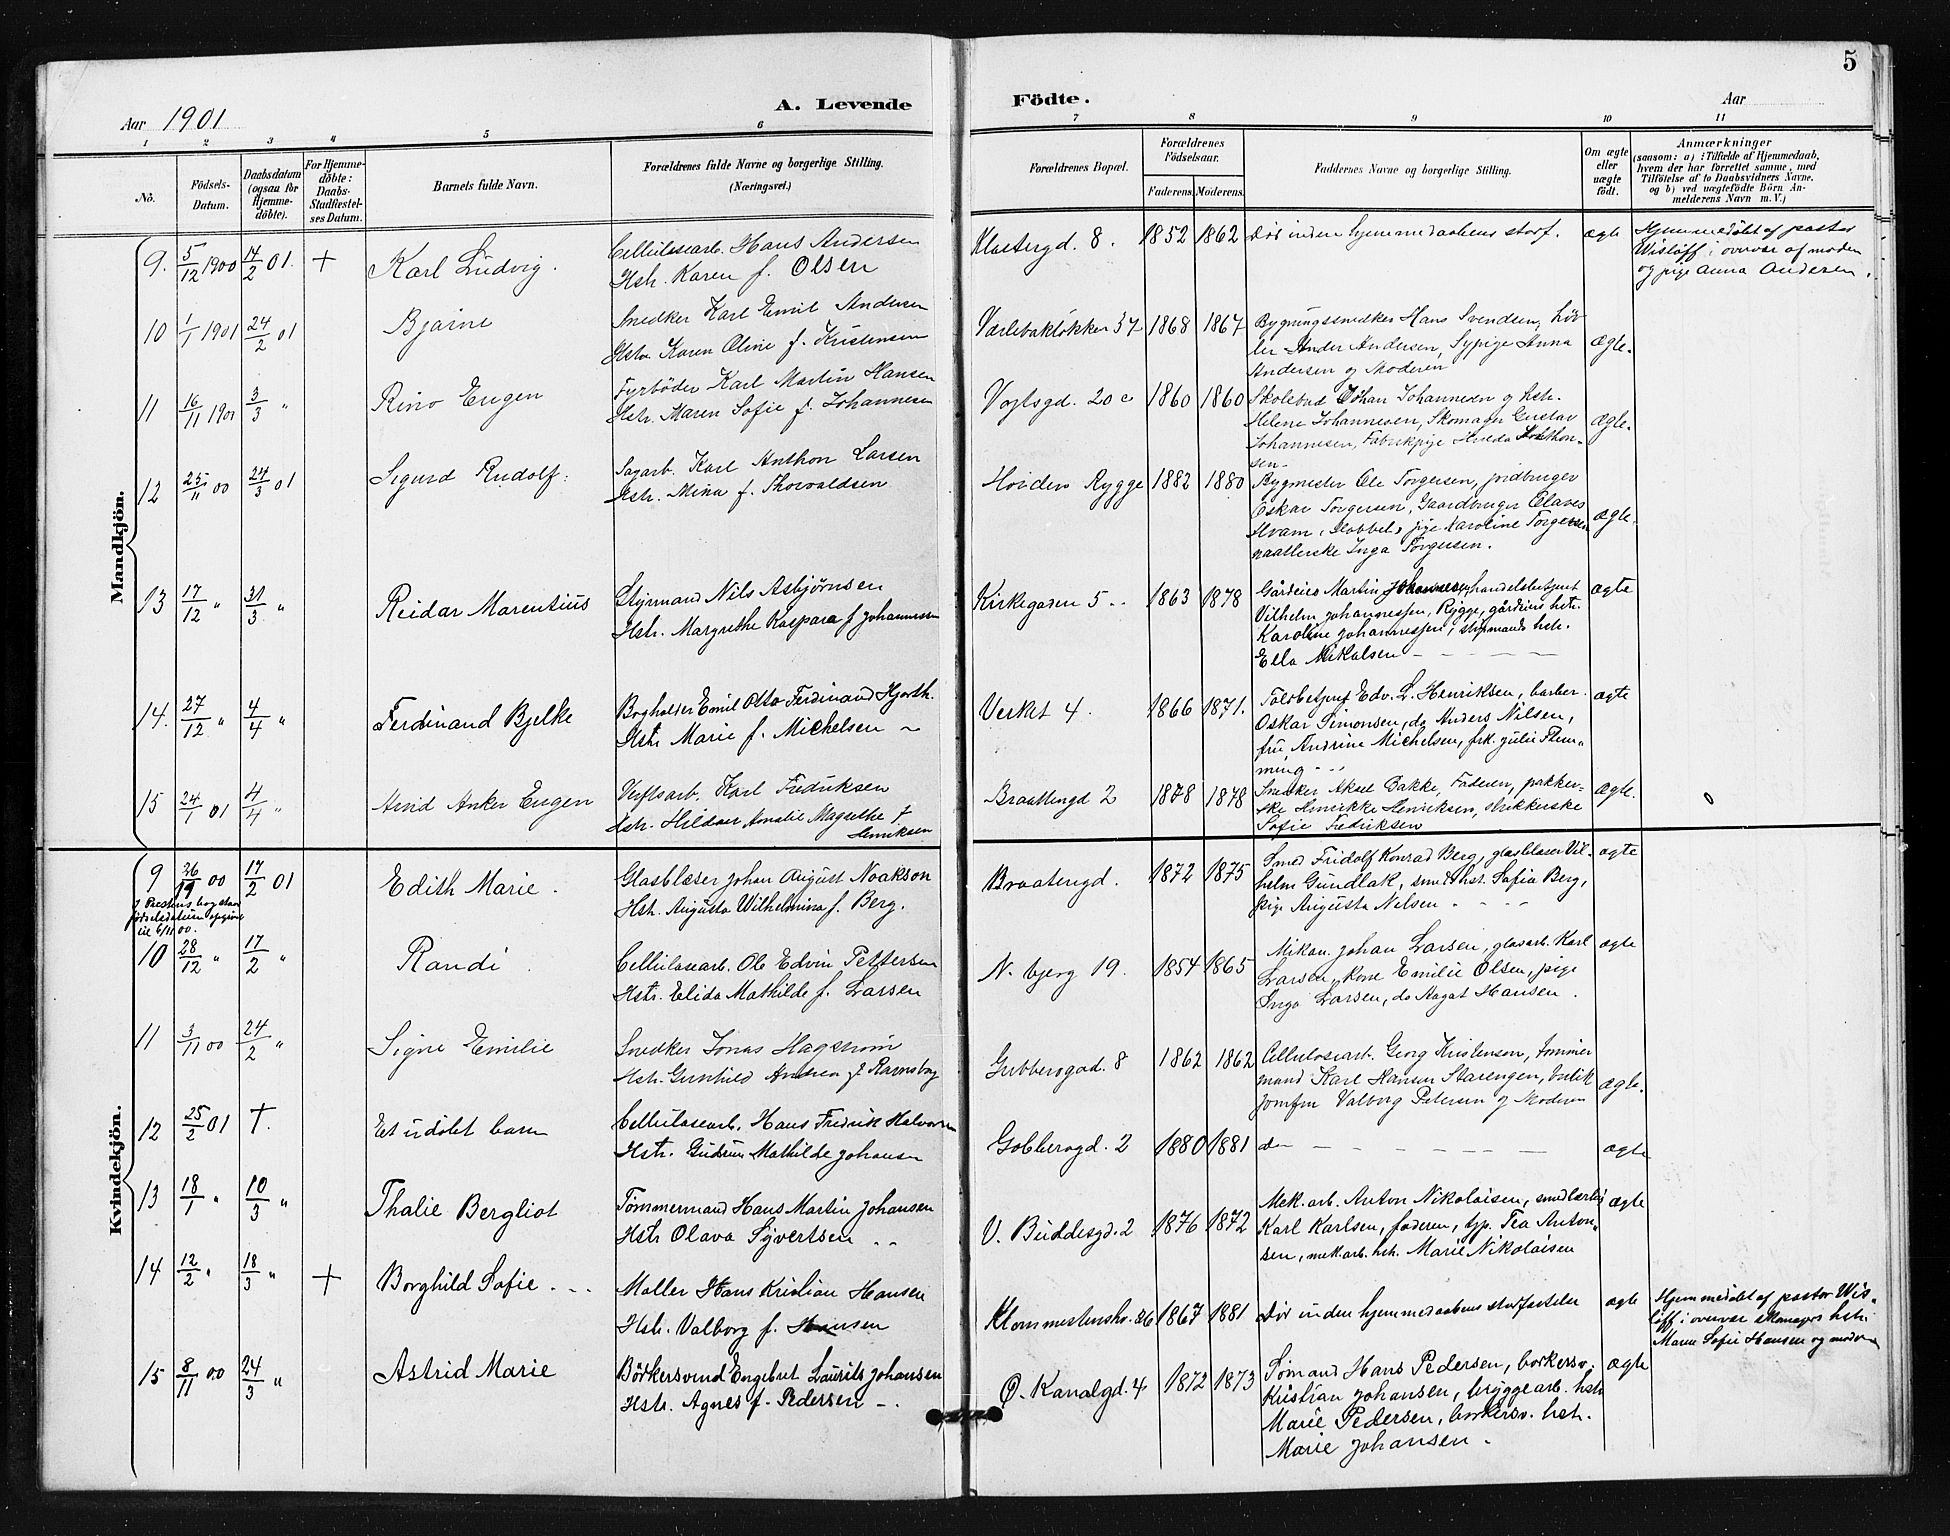 5
Aar 1901
A. Levende Födte.
Aar
1 2 3 4 5 6 7 8 9 10 11
No.
Födsels-Datum.
Daabsdatum (ogsaa for Hjemme-döbte).
For Hjemme-döbte: Daabs-Stadfæstel-ses Datum.
Barnets fulde Navn.
Forældrenes fulde Navne og borgerlige Stilling. (Næringsvei.)
Forældrenes Bopæl.
Forældrenes Födselsaar.
Faderens. Moderens.
Faddernes Navne og borgerlige Stilling.
Om ægte eller uægte födt.
Anmærkninger
(saasom: a) i Tilfælde af Hjemmedaab,
hvem der har forrettet samme, med
Tilföielse af to Daabsvidners Navne,
og b) ved uægtefödte Börn An-
melderens Navn m. V.)
Mandkjön.
9. 5/12 1900 14/2 01. + Karl Ludvig.
Cellulosearb. Hans Andersen
Hstr. Karen f. Olsen
Klostergd. 8. 1852 1862 Död inden hjemmedaabens stadf. ægte
Hjemmedöbt af pastor
Wislöff i overvær af moden
og pige Anna Andersen.
10 1/1 1901 24/2 01 Bjarne
Snedker Karl Emil Andersen
Hstr Karen Oline f. Kristensen
Varlebakløkken 37 1868 1867
Bygningssnedker Hans Svendsen, höv
ler Ander Andersen, Sypige Anna
Andersen og Moderen
ægte.
11 16/11 1901 3/3 " Rino Eugen
Fyrböder Karl Martin Hansen
Hstr. Maren Sofie f. Johannesen
Vogtsgd. 20 c 1860 1860
Johan Johannesen og hstr.
Helene Johannesen, Skomager Gustav
Johannesen, Fabrikpige
sen.
ægte.
12 25/11 00 24/3 01 Sigurd Rudolf.
Sagarb. Karl Anthon Larsen
Hstr. Mina f. Thorvaldsen
Höiden Rygge 1882 1880
Bygmester Ole Torgersen, jordbruger
Oskar Torgersen, Gaardbruger Olaves
Hvam, pige Karoline Torgersen
Inga Torgersen.
ægte.
13 17/12 " 31/3 " Reidar Marentius
Styrmand Nils Asbjørnsen
Hstr. Margrethe Kaspara f Johannessen
Kirkegaden 5 .. 1863 1878
Gårdeier Martin Johannessen, handelsbetjent
Vilhelm Johannessen, Rygge, gårdeiers hstr.
Karoline Johannessen, styrmands hstr.
Ella Mikalsen - - - - -
ægte
14. 27/12 " 4/4 " Ferdinand Bjelke
Bogholder Emil Otto Ferdinand Hjorth.
Hstr Marie f. Michelsen ~
Verket 4. 1866 1871.
Toldbetjent Edv. L. Henriksen, barber
Oskar Simonsen, do Anders Nilsen,
fru Andrine Michelsen, frk. Julie Flem-
ming - - -
ægte
15 24/1 01 4/4 " Arvid Anker Eugen
Verftsarb. Karl Fredriksen
Hstr. Hildur Amalie Magrethe f
Henriksen
Braatengd 2 1878 1878
Snedker Aksel Bakke, Faderen, pakker-
ske Henrikke Henriksen, strikkerske
Sofie Fredriksen
ægte.
0
Kvindekjön.
9 26/19 00 17/2 01 Edith Marie.
I Prestens bog staar
födselsdatoen opgivet
til 6/11 00.
Glasblæser Johan August Noakson
Hstr. Augusta Wilhelmina f. Berg.
Braatengd. 1872 1875
Smed Fridolf Konrad Berg, glasblæser Vil-
helm Gundlak, smed hst. Sofia Berg,
pige Augusta Nelsen - - - -
ægte
10 28/12 " 17/2 " Randi.
Cellulosearb. Ole Edvin Pettersen
Hstr. Elida Mathilde f. Larsen
N. bjerg 19. 1854 1865
Mikan. Johan Larsen, glasarb. Karl
Larsen, kone Emilie Olsen, pige
Inga Larsen, do Aagot Hansen.
ægte
11 3/11 00 24/2 " Signe Emilie
Snedker Jonas Hagstrøm
Hstr. Gunhild Andrea f Ramsborg
Gubberogad. 8 1862 1862
Cellulosearb. Georg Kristensen, tömmer
mand Karl Hansen Starengen, butik
jomfru Valborg Petersen og Moderen
ægte.
12 25/2 01 †. Et udöbt barn
Cellulosearb. Hans Fredrik Halvorsen
Hstr. Gudrun Mathilde Johansen
Gobberogd. 2 1880 1881 do - - - - - ægte
13 18/1 " 10/3 " Thalie Bergliot
Tømmermand Hans Martin Johansen
Hstr Olava Syvertsen . .
V. Buddesgd. 2 1876 1872
Mek. arb. Anton Nikolaisen, smedlærling
Karl Karlsen, faderen, tjp. Tea Anton-
sen, mek arb. hst. Marie Nikolaisen
ægte
14 12/2 " 18/3 " + Borghild Sofie . . .
Maller Hans Kristian Hansen
Hstr. Valborg f. Hansen
Klommestensko. 26 1867 1881 Död inden hjemmedaabens stadfæstelse ægte
Hjemmedöbt af pastor Wis-
löff i overvær skomagers hstr.
Maren Sofie Hansen og moderen
15 8/11 00 24/3 " Astrid Marie
Börkersvend Engebret Laurits Johansen
Hstr. Agnes f. Pedersen - .
Ø. Kanalgd. 4 1872 1873
Sømand Hans Pedersen, børkersv.
Kristian Johansen, bryggearb. hstr
Marie Pedersen, børkersv. hstr.
Marie Johansen -
ægte